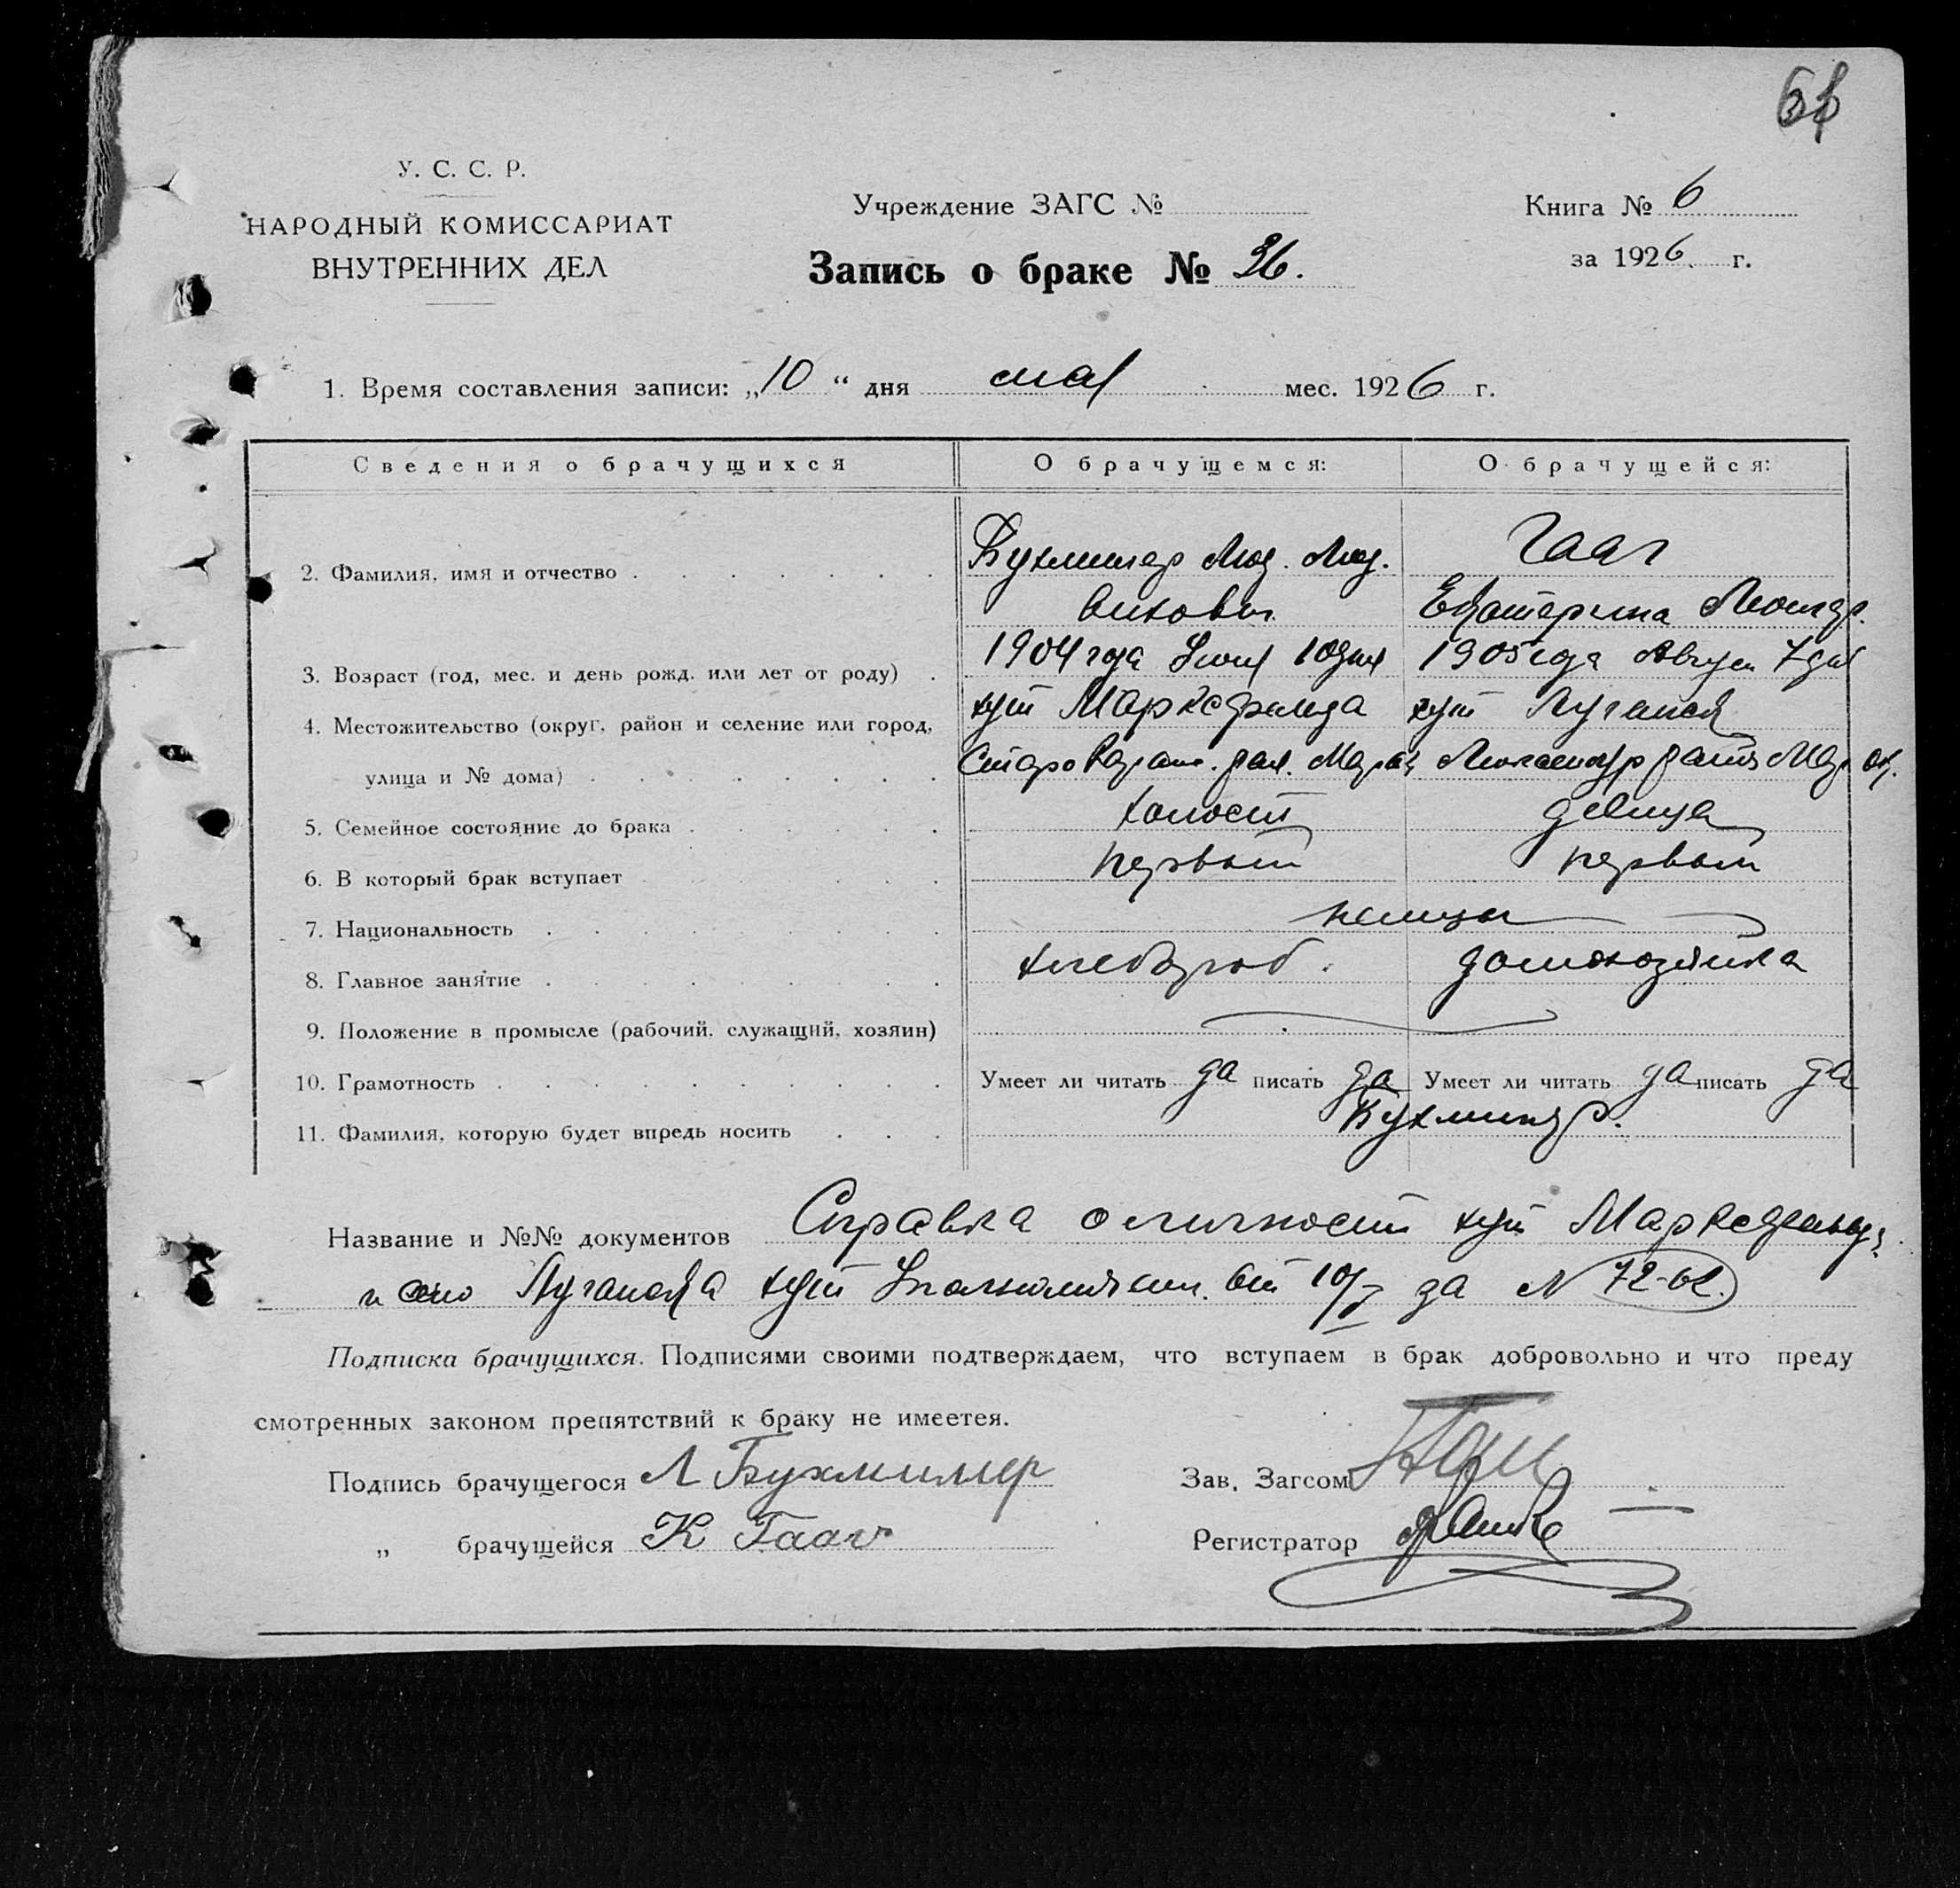 У. С. С. Р.
НАРОДНЫЙ КОМИССАРИАТ
ВНУТРЕННИХ ДЕЛ
Учреждение ЗАГС №
Запись о браке № 36.
Книга № 6
за 1926 г.
1. Время составления записи: „10“ дня мая мес. 1926 г.
Сведения о брачущихся О брачущемся: О брачущейся:
2. Фамилия, имя и отчество Бухмиллер Люд. Люд. Гааг
викович Екатерина
3. Возраст (год, мес. и день рожд. или лет от роду) 1904 года 10 дня 1905 года Август 7 дня
4. Местожительство (округ, район и селение или город, хут хут
улица и № дома)
5. Семейное состояние до брака холост девица
6. В который брак вступает первый первый
7. Национальность немцы
8. Главное занятие хлебороб. домохозяйка
9. Положение в промысле (рабочий, служащий, хозяин)
10. Грамотность Умеет ли читать да писать да Умеет ли читать да писать да
11. Фамилия, которую будет впредь носить Бухмиллер.
Название и №№ документов Справка о личности хут
и хут от 10/V за N 72-62.
Подписка брачущихся. Подписями своими подтверждаем, что вступаем в брак добровольно и что преду
смотренных законом препятствий к браку не имеется.
Подпись брачущегося Л Бухмиллер Зав. Загсом
„ брачущейся К Гааг Регистратор